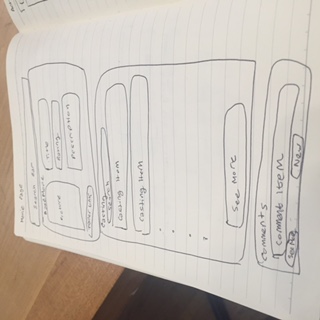 Movie Page
Search Bar
Title
Picture
Rating
Description
Casting
Search
Casting Item
Casting Item
See More
Comments
Comment Item
New